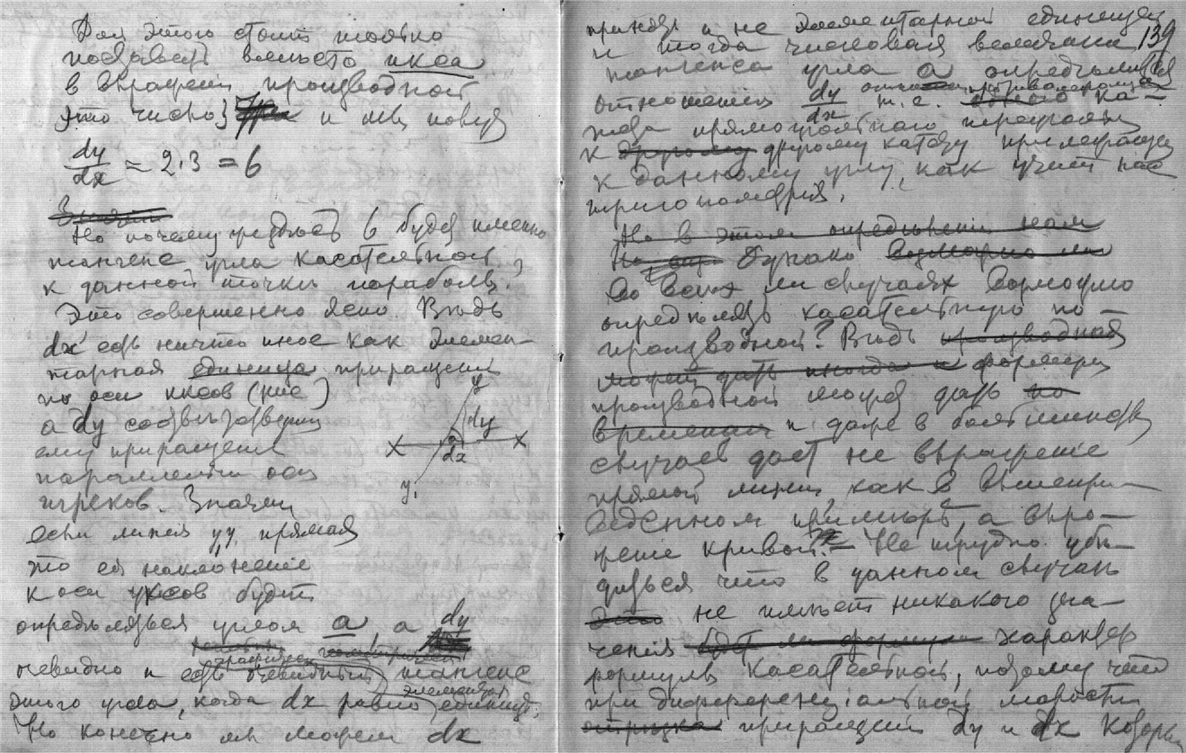 Для этого стоит только
поставить вместо икса
в выражении производной
это число 3 и мы получ
dy/dx = 2·3 = 6
Но почему 6 будет именно
тангенс угла касательной
к данной точки параболы?
Это совершенно ясно. Вѣдь
dx есть ничто иное как элемен-
тарная единица приращения
по оси иксов
а dy соотвѣтствующ
ему приращение
параллельно оси
игреков. Значит
если линия yy, прямая
то ея наклонение
к оси иксов будет
y
dy
X X
dx
y,
опредѣляться углом a, а dy
очевидно и есть тангенс
этого угла, когда dx равно единице.
Но конечно мы можем dx
139
принять и не элементарной единицей
и тогда числовая величина
тангенса угла a опредѣлится
отношением dy/dx т.е. ка-
тета прямоугольного
к другому катету прилежащему
к данному углу, как учит нас
тригонометрия.
Но в этом опредѣлении нам
Однако возможно ли
Во всех ли случаях возможно
опредѣлять касательную по
производной? Вѣдь производная
может дать иногда и формула
производной может дать по
и даже в большинствѣ
случаев дает не выражение
прямой линии, как в вышепри-
веденном примѣрѣ, а выра-
жение кривой. Не трудно убѣ-
диться что в данном случаѣ
это не имѣет никакого зна-
чения характер
формулы касательной, потому что
при дифференциальной малости
отрѣзка приращений dy и dx которы